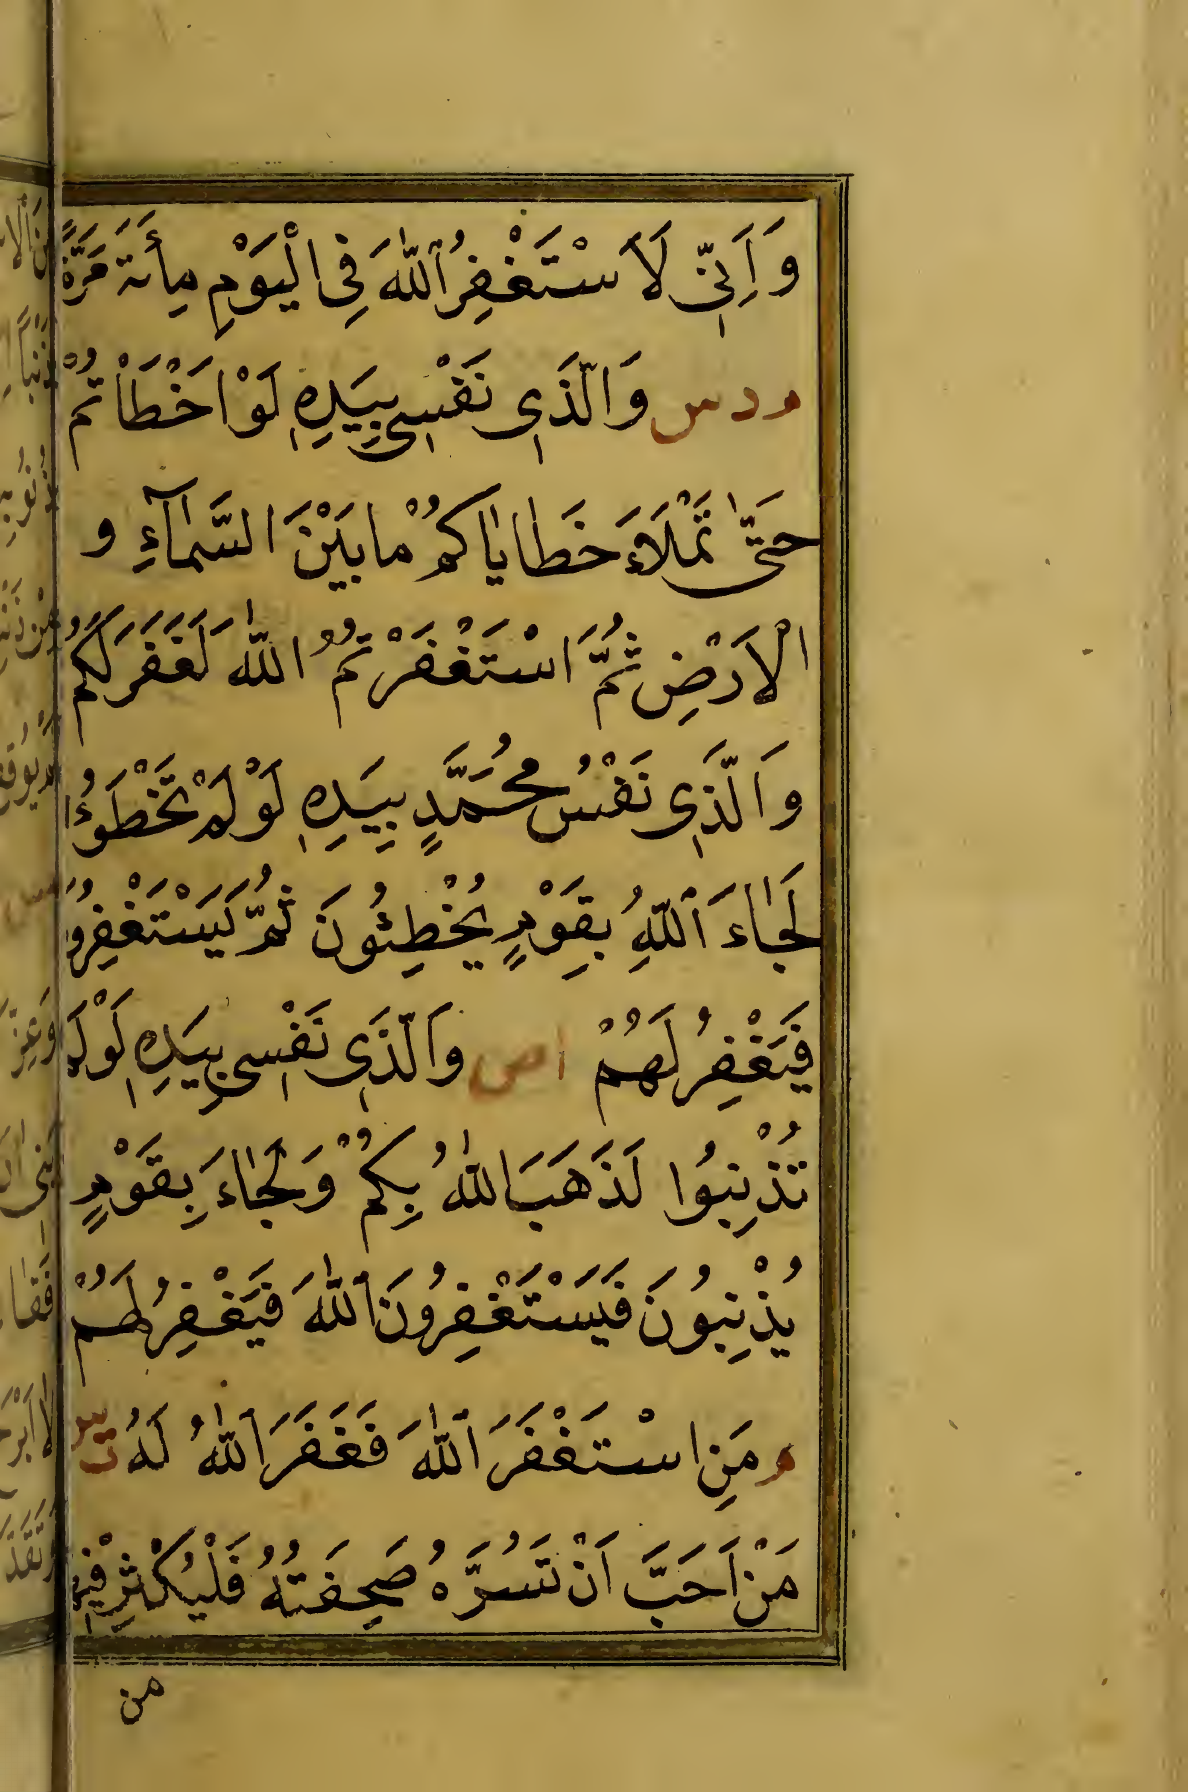 وَاَِنِّي لَاَسْتَغْفِرُ ٱللّٰهَ فِي الْيَوْمِ مِأَتَهَ مَرَّةً
م د س وَالَّذِي نَفْسِي بِيَدِهِ لَوْ اَخْطَاْتُمْ
حَتّٰى تَمْلَاَءَ خَطٰايٰاكُمْ مٰا بَيْنَ السَّمٰآءِ و
الْاَرْضِ ثُمَّ اسْتَغْفَرْتُمُ اللّٰهَ لَغَفَرَ لَكُمْ
وَالَّذِي نَفْسُ مُحَمَّدٍ بِيَدِهِ لَوْ لَمْ تَخْطَؤُا
لَجٰاءَ ٱللّٰهُ بِقَوْمٍ يُخْطِئُونَ ثُمَّ يَسْتَغْفِرُو
فَيَغْفِرُ لَهُمْ ا ص وَالَّذِي نَفْسِي بِيَدِهِ لَوْ لَمْ
تُذْنِبُوا لَذَهَبَ اللّٰهُ بِكُمْ وَلَجٰاءَ بِقَوْمٍ
يُذْنِبُونَ فَيَسْتَغْفِرُونَ ٱللّٰهَ فَيَغْفِرُ لَهُمْ
م مَنِ اسْتَغْفَرَ ٱللّٰهَ فَغَفَرَ ٱللّٰهُ لَهُ ت س
مَنْ اَحَبَّ اَنْ تَسُرَّهُ صَحِفَتُهُ فَلْيُكْثِرْ فِيهٰا
من